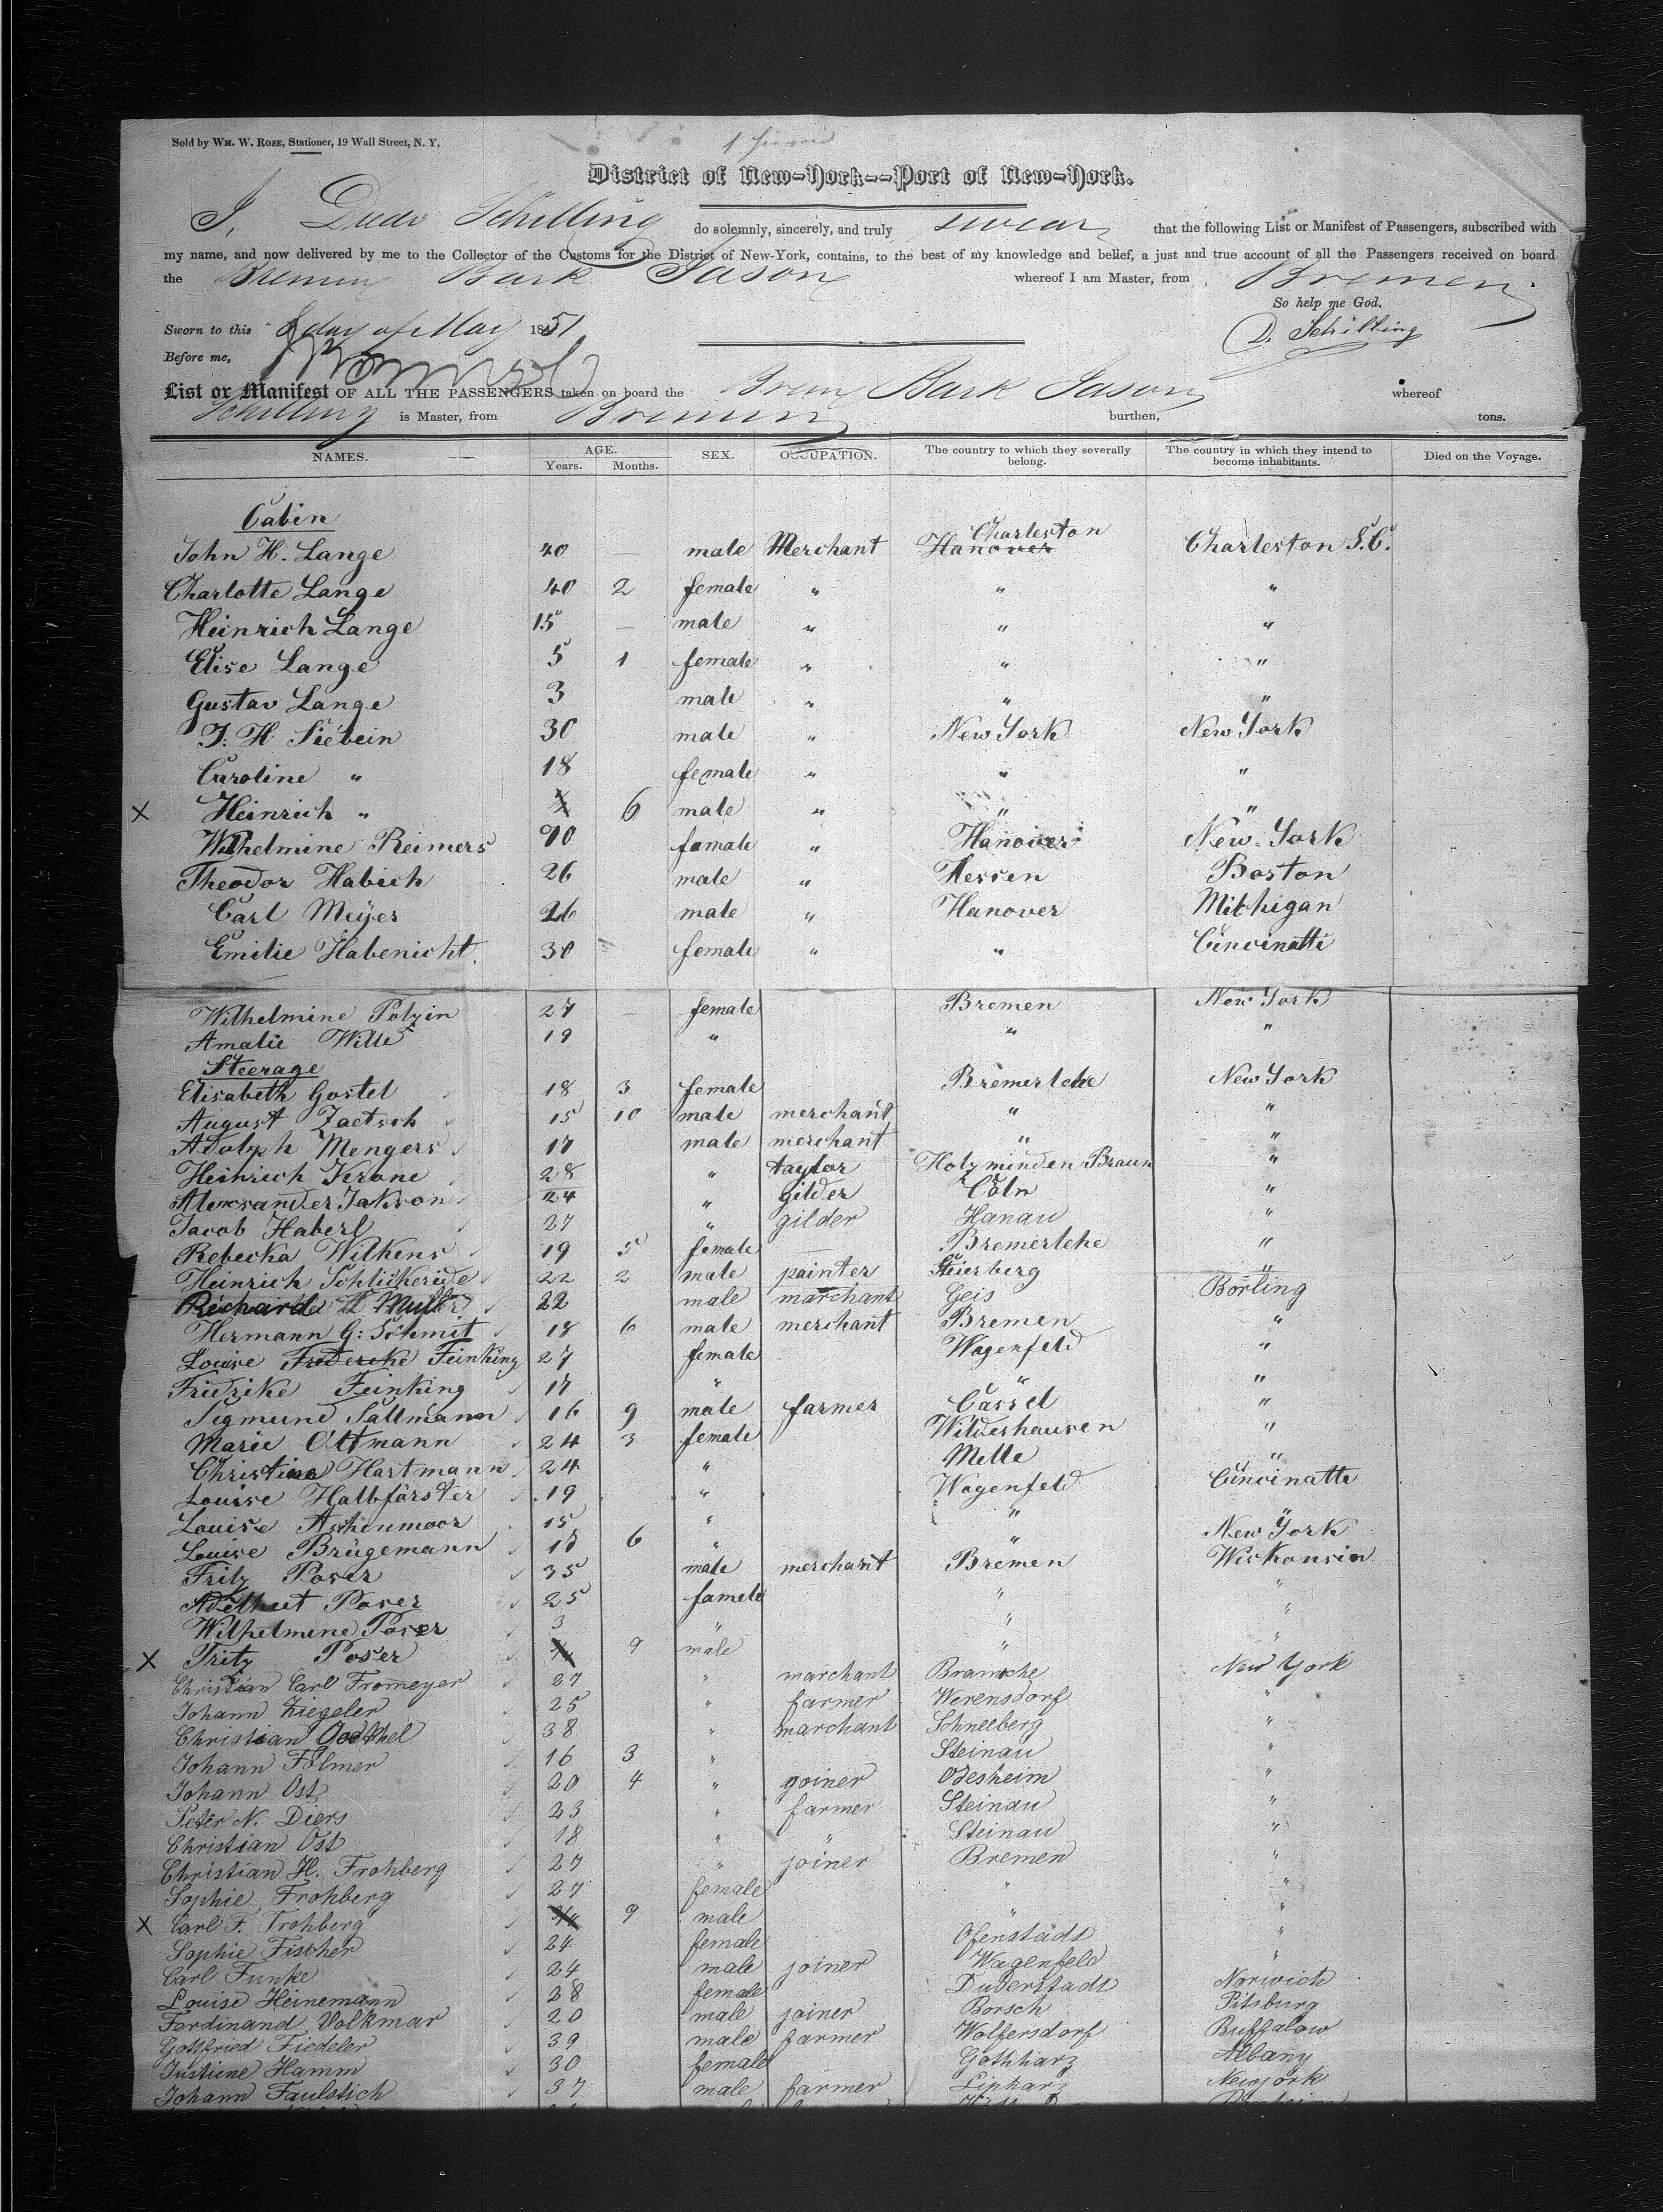 Sold by WM. W. ROSE, Stationer, 19 Wall Street, N. Y.
District of New-York--Port of New-York.
I, Duds Schilling do solemnly, sincerely, and truly swear that the following List or Manifest of Passengers, subscribed with
my name, and now delivered by me to the Collector of the Customs for the District of New-York, contains, to the best of my knowledge and belief, a just and true account of all the Passengers received on board
the Bremen Bark Jason whereof I am Master, from Bremen
So help me God.
Sworn to this 8 day of May 1851 D. Schilling
Before me,
List or Manifest OF ALL THE PASSENGERS taken on board the Brem Bark Jason whereof
Schilling is Master, from Bremen burthen, tons.
NAMES. AGE. Years. Months. SEX. OCCUPATION. The country to which they severally belong. The country in which they intend to become inhabitants. Died on the Voyage.
Cabin
John H. Lange 40 male Merchant Hanover Charleston Charleston S.C.
Charlotte Lange 40 2 female " " "
Heinrich Lange 15 — male " " "
Elise Lange 5 1 female " " "
Gustav Lange 3 male " " "
J. H. Siebein 30 male " New York New York
Caroline " 18 female " " "
X Heinrich " 6 male " " "
Wilhelmine Reimers 90 female " Hanover New York
Theodor Habich 26 male " Hessen Boston
Carl Meÿer 26 male " Hanover Mithigan
Emilie Habenicht. 30 female " " Cincinatti
Wilhelmine Polzin 27 — female Bremen New York
Amalie Wille 19 " " "
Steerage
Elisabeth Gostel 18 3 female Bremerlehe New York
August Zaetsch 15 10 male merchant " "
Adolph Mengers 17 male merchant " "
Heinrich Krone 28 " taylor Holzminden Braun "
Alexsander Jakson 24 " gilder Cöln "
Jacob Haberl 27 " gilder Hanau "
Rebecka Wilkens 19 5 female — Bremerlehe "
Heinrich Schlickeride 22 2 male painter Steierberg "
Richard Muller 22 male marchant Geis Borling
Hermann G. Schmit 18 6 male merchant Bremen "
Louise Fredereke Feinking 27 female Wagenfeld "
Fridrike Feinking 17 " " "
Sigmund Sallmann 16 9 male farmer Cassel "
Marie Oltmann 24 3 female Wildeshausen "
Christiane Hartmann 24 " Melle "
Louise Halbfärster 19 " Wagenfeld Cincinatte
Louise Aschenmoor 15 " " "
Louise Brügemann 18 6 " " New York
Fritz Poser 35 male merchant Bremen Wiskonsin
Adelheit Poser 25 famele " "
Wilhelmine Poser 3 " " "
X Fritz Poser 9 male " "
Christian Carl Fromeyer 27 " marchant Bramsche New York
Johann Ziegeler 25 " farmer Werensdorf "
Christian Goethel 38 " marchant Schneeberg "
Johann Fölmer 16 3 " Steinau "
Johann Ost 20 4 " goiner Odesheim "
Peter N. Diers 23 " farmer Steinau "
Christian Ost 18 " " Steinau "
Christian H. Frohberg 27 " joiner Bremen "
Sophie Frohberg 27 female " "
X Carl F. Frohberg 9 male " "
Sophie Fischer 24 female Ofenstädt "
Carl Funke 24 male joiner Wagenfeld "
Louise Heinemann 28 female Duderstadt Norwich
Ferdinand Volkmar 20 male joiner Borsch Pitsburg
Gottfried Fiedeler 39 male farmer Wolfersdorf Buffalow
Justiene Hamm 30 female Gothharz Albany
Johann Faulstich 37 male farmer Lipharz Newjork